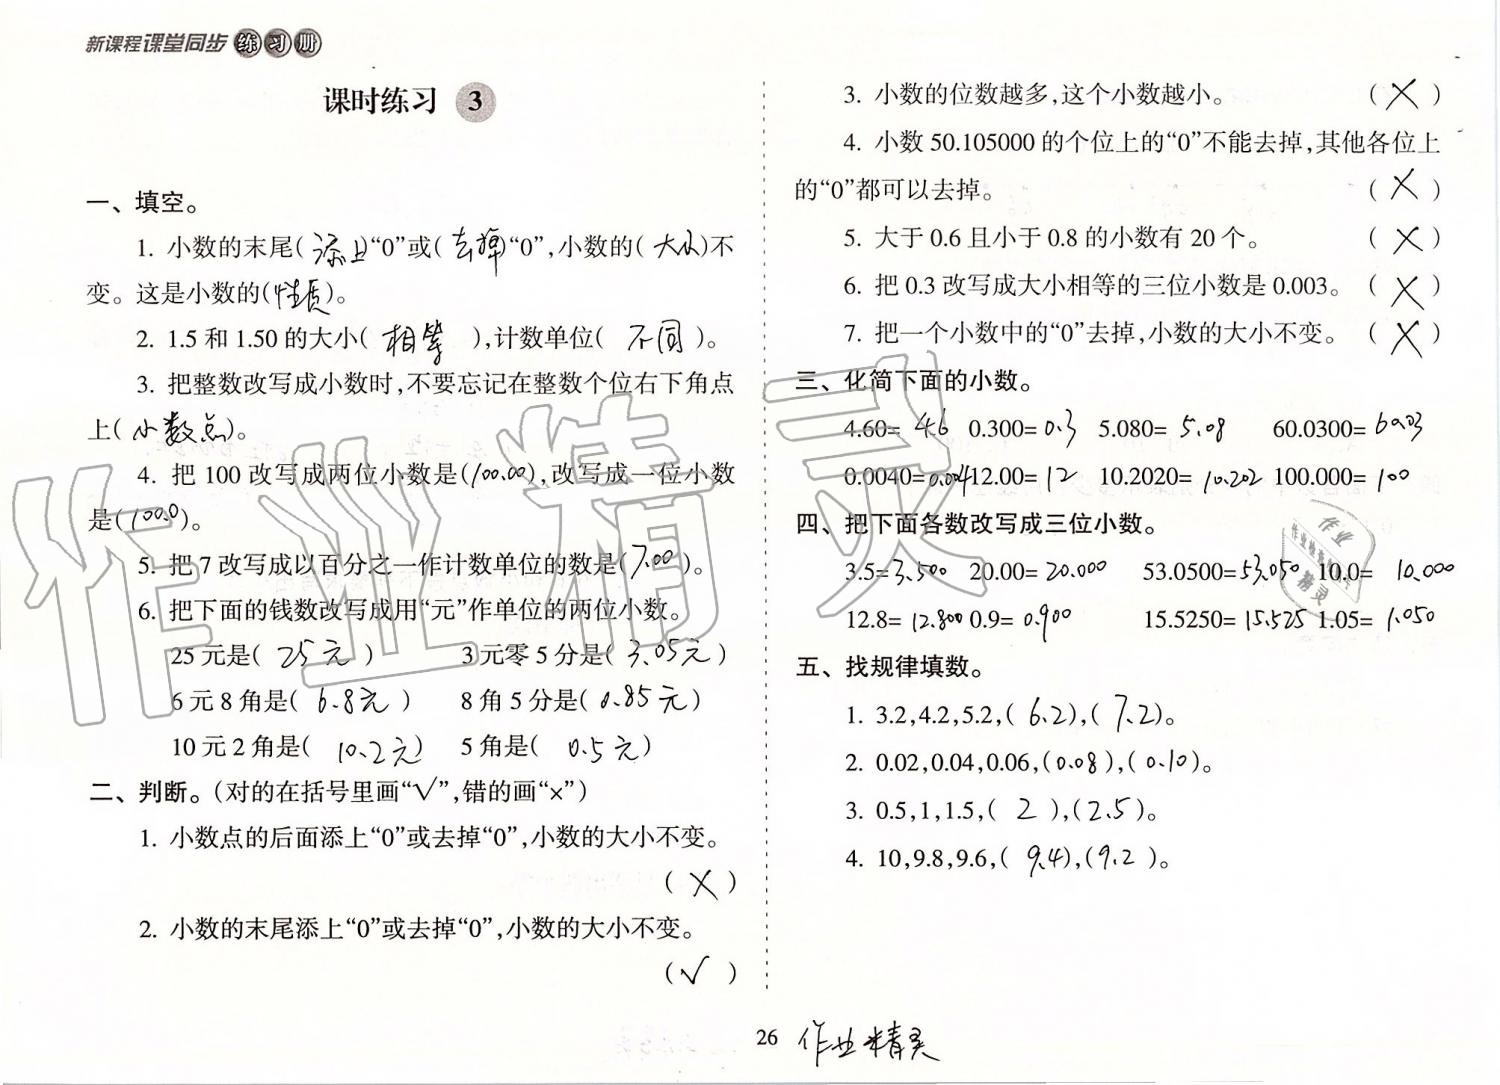 新课程课堂同步练习册
课时练习 3
一、填空。
1. 小数的末尾(添上)“0”或(去掉)“0”,小数的(大小)不
变。这是小数的(性质)。
2. 1.5 和 1.50 的大小( 相等 ),计数单位( 不同 )。
3. 把整数改写成小数时,不要忘记在整数个位右下角点
上(小数点)。
4. 把 100 改写成两位小数是(100.00),改写成一位小数
是(100.0)。
5. 把 7 改写成以百分之一作计数单位的数是(7.00)。
6. 把下面的钱数改写成用“元”作单位的两位小数。
25 元是( 25元 ) 3 元零 5 分是( 3.05元 )
6 元 8 角是( 6.8元 ) 8 角 5 分是( 0.85元 )
10 元 2 角是( 10.2元 ) 5 角是( 0.5元 )
二、判断。(对的在括号里画“√”,错的画“×”)
1. 小数点的后面添上“0”或去掉“0”,小数的大小不变。
( X )
2. 小数的末尾添上“0”或去掉“0”,小数的大小不变。
( √ )
3. 小数的位数越多,这个小数越小。 ( X )
4. 小数 50.105000 的个位上的“0”不能去掉,其他各位上
的“0”都可以去掉。 ( X )
5. 大于 0.6 且小于 0.8 的小数有 20 个。 ( X )
6. 把 0.3 改写成大小相等的三位小数是 0.003。 ( X )
7. 把一个小数中的“0”去掉,小数的大小不变。 ( X )
三、化简下面的小数。
4.60= 4.6 0.300= 0.3 5.080= 5.08 60.0300= 60.03
0.0040= 0.004 12.00= 12 10.2020= 10.202 100.000= 100
四、把下面各数改写成三位小数。
3.5= 3.500 20.00= 20.000 53.0500= 53.050 10.0= 10.000
12.8= 12.800 0.9= 0.900 15.5250= 15.525 1.05= 1.050
五、找规律填数。
1. 3.2,4.2,5.2,( 6.2),( 7.2)。
2. 0.02,0.04,0.06,(0.08),(0.10)。
3. 0.5,1,1.5,( 2 ),(2.5)。
4. 10,9.8,9.6,( 9.4),(9.2 )。
26 作业精灵
作业精灵
作业
作业检查
精灵